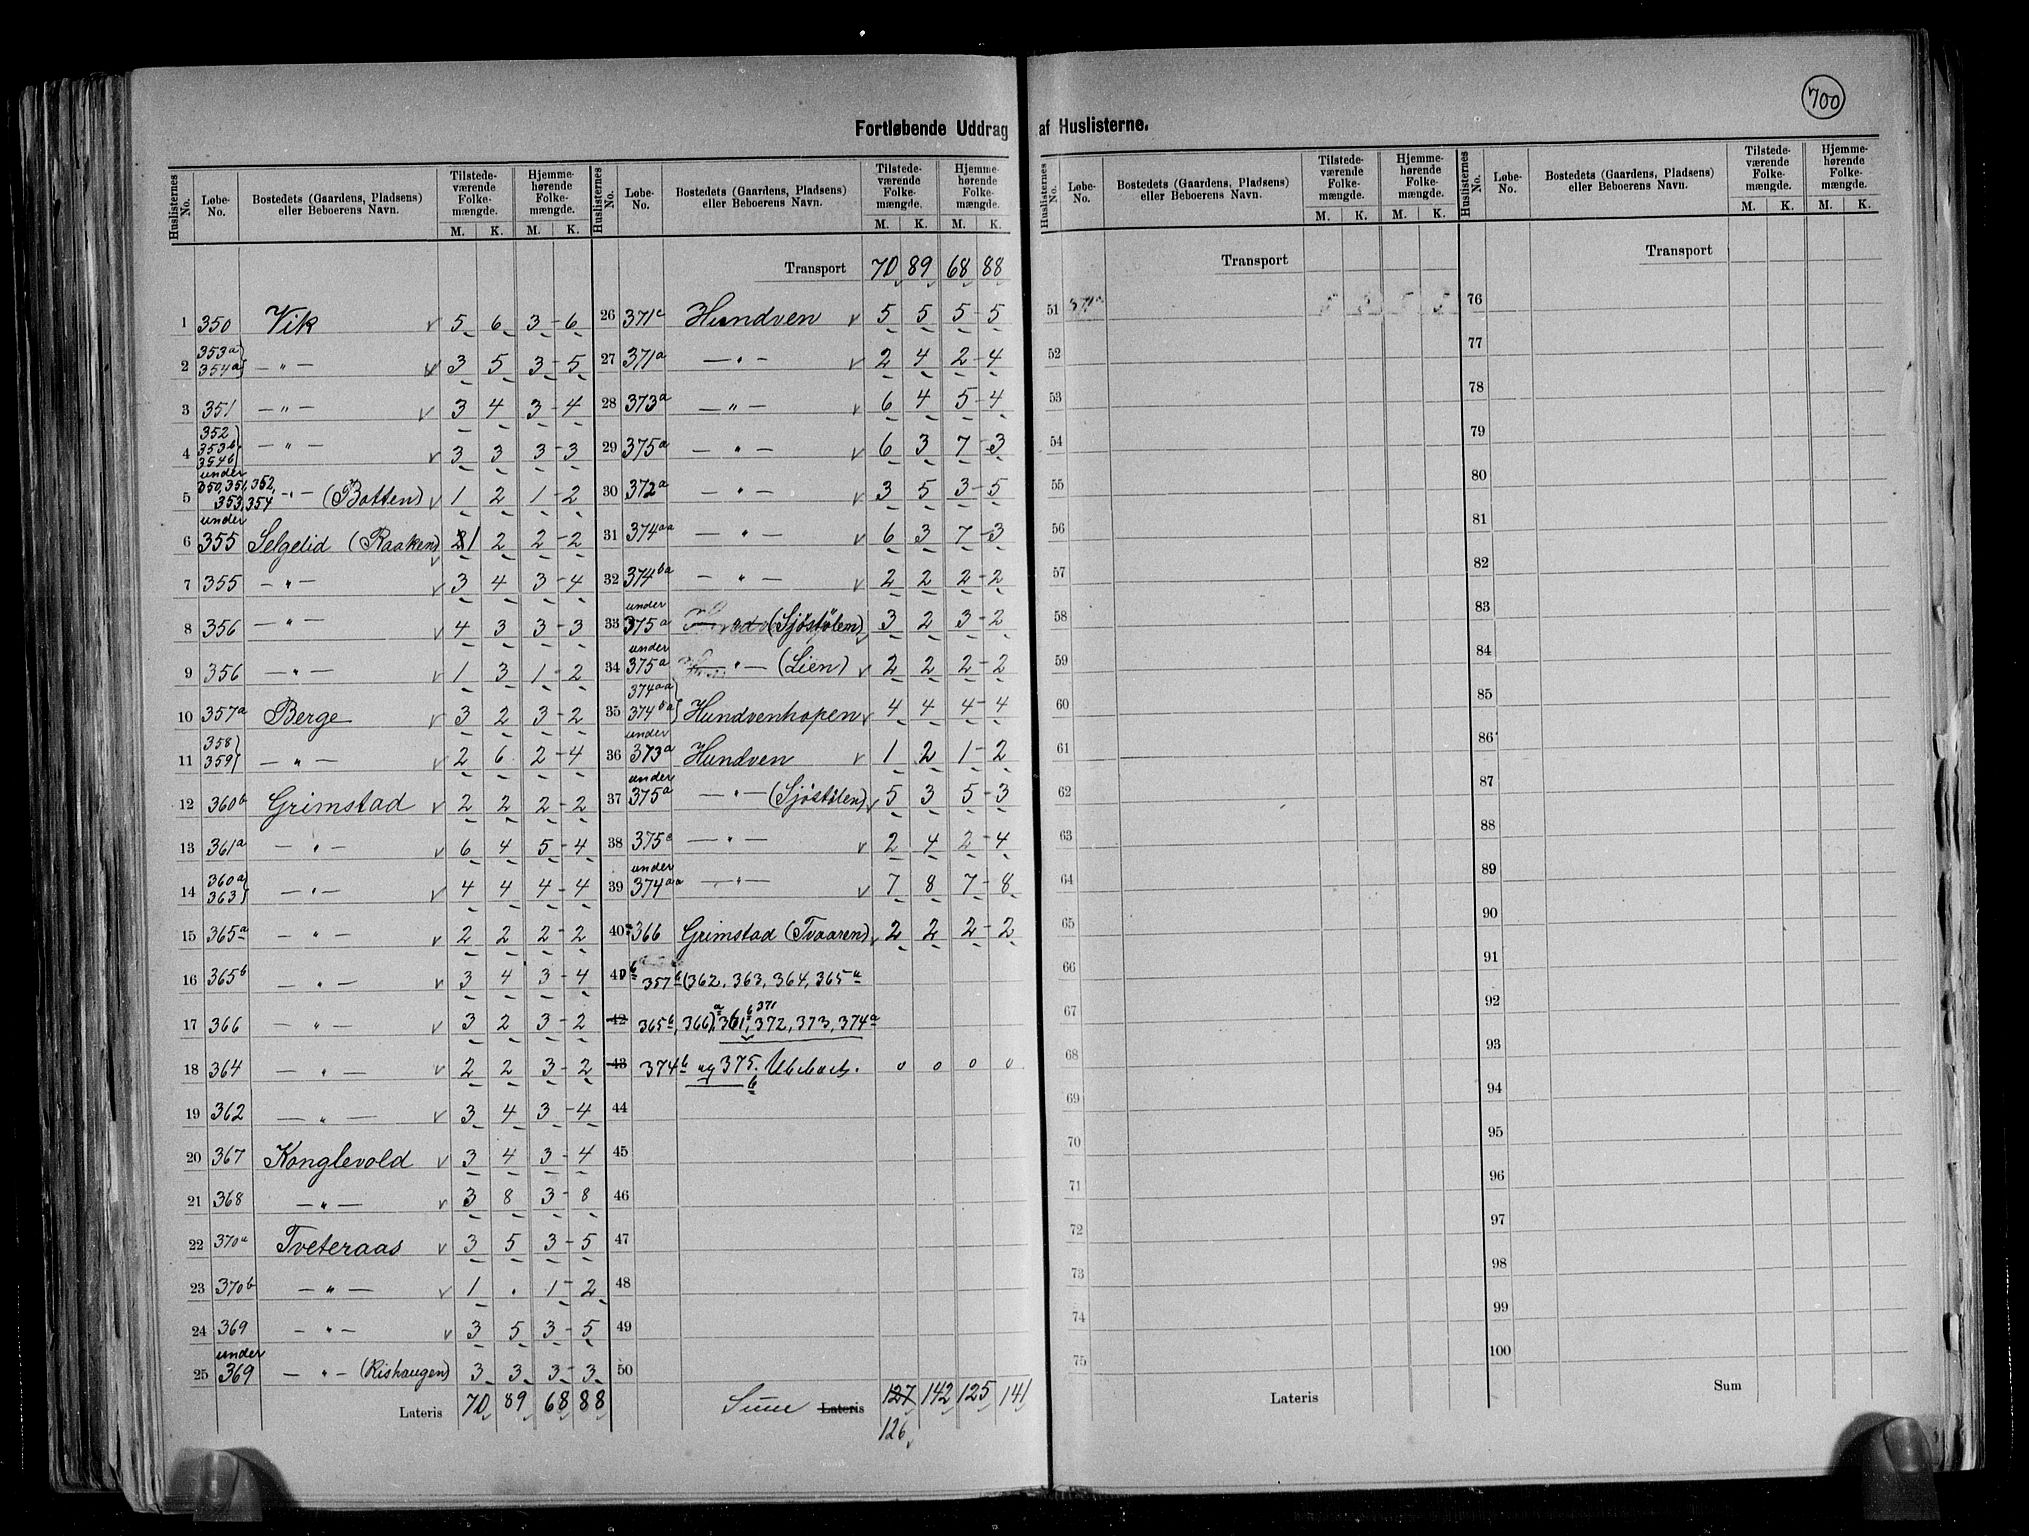 700
Fortløbende Uddrag af Huslisternes.
Huslisternes No. | Løbe-No. | Bostedets (Gaardens, Pladsens) eller Beboerens Navn. | Tilstedeværende Folkemængde. M. K. | Hjemmehørende Folkemængde. M. K.
1 350 Vik v 5 6 3 - 6
2 353a 354a } — " — v 3 5 3 - 5
3 351 — " — v 3 4 3 - 4
4 352 353b 354b } — " — v 3 3 3 - 3
5 under 350, 351, 352, 353, 354 — " — (Botten) v 1 2 1 - 2
6 under 355 Selgelid (Raaken) v 1 2 2 - 2
7 355 — " — v 3 4 3 - 4
8 356 — " — v 4 3 3 - 3
9 356 — " — v 1 3 1 - 2
10 357a Berge v 3 2 3 - 2
11 358 359 } — " — v 2 6 2 - 4
12 360b Grimstad v 2 2 2 - 2
13 361a — " — v 6 4 5 - 4
14 360a 363 } — " — v 4 4 4 - 4
15 365a — " — v 2 2 2 - 2
16 365b — " — v 3 4 3 - 4
17 366 — " — v 3 2 3 - 2
18 364 — " — v 2 2 3 - 2
19 362 — " — v 3 4 3 - 4
20 367 Konglevold v 3 4 3 - 4
21 368 — " — v 3 8 3 - 8
22 370a Tveteraas v 3 5 3 - 5
23 370b — " — v 1 . 1 - 2
24 369 — " — v 3 5 3 - 5
25 under 369 — " — (Rishaugen) 3 3 3 - 3
Lateris 70 89 68 88
Huslisternes No. | Løbe-No. | Bostedets (Gaardens, Pladsens) eller Beboerens Navn. | Tilstedeværende Folkemængde. M. K. | Hjemmehørende Folkemængde. M. K.
Transport 70 89 68 88
26 371c Hundven v 5 5 5 - 5
27 371a — " — v 2 4 2 - 4
28 373a — " — v 6 4 5 - 4
29 375a — " — v 6 3 7 - 3
30 372a — " — v 3 5 3 - 5
31 374aa — " — v 6 3 7 - 3
32 374ba — " — v 2 2 2 - 2
33 under 375a (Sjöstölen) v 3 2 3 - 2
34 under 375a — " — (Lien) v 2 2 2 - 2
35 374aa 374ba } Hundvenhopen v 4 4 4 - 4
36 under 373a Hundven v 1 2 1 - 2
37 under 375a — " — (Sjöstölen) v 5 3 5 - 3
38 375c — " — v 2 4 2 - 4
39 under 374aa — " — v 7 8 7 - 8
40a 366 Grimstad (Tvaaren) v 2 2 2 - 2
41 b 357b (362, 363, 364, 365a
42 365b, 366), 361b, 371a, 372, 373, 374a
43 374b og 375b. Ubeboet. 0 0 0 0
44
45
46
47
48
49
50
Sum Lateris 127 142 125 141
126
Huslisternes No. | Løbe-No. | Bostedets (Gaardens, Pladsens) eller Beboerens Navn. | Tilstedeværende Folkemængde. M. K. | Hjemmehørende Folkemængde. M. K.
Transport
51 371a
52
53
54
55
56
57
58
59
60
61
62
63
64
65
66
67
68
69
70
71
72
73
74
75
Lateris
Huslisternes No. | Løbe-No. | Bostedets (Gaardens, Pladsens) eller Beboerens Navn. | Tilstedeværende Folkemængde. M. K. | Hjemmehørende Folkemængde. M. K.
Transport
76
77
78
79
80
81
82
83
84
85
86
87
88
89
90
91
92
93
94
95
96
97
98
99
100
Sum